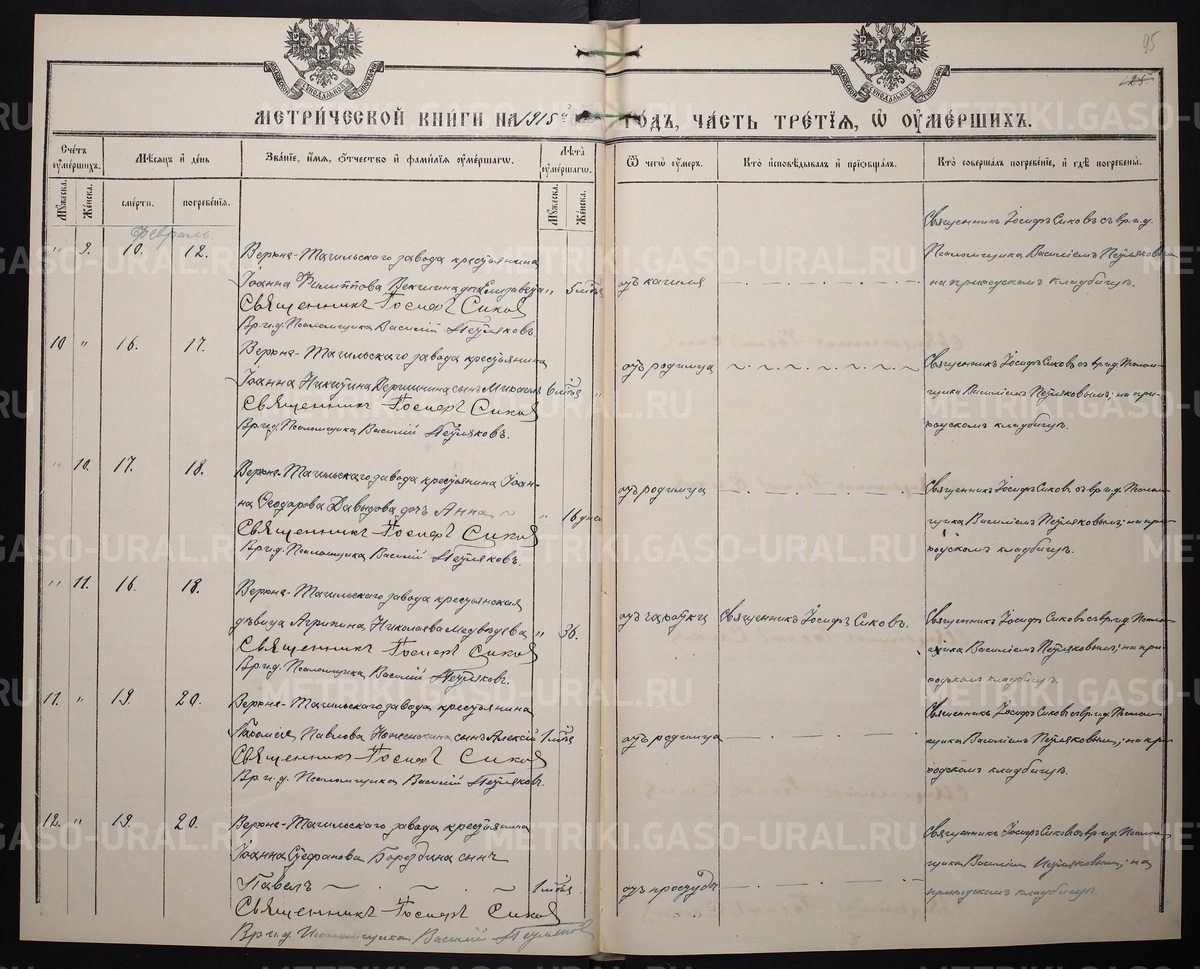 95
125
МЕТРИЧЕСКОЙ КНИГИ НА 1915 ГОДЪ, ЧАСТЬ ТРЕТІЯ, Ѿ ОУМЕРШИХЪ.
Счетъ оумершихъ.
Мѣсяцъ и день
Званіе, имя, отчество и фамилія оумершагѡ.
Лѣта оумершагѡ.
Ѿ чегѡ оумеръ.
Кто исповѣдывалъ и пріобщалъ.
Кто совершалъ погребеніе, и гдѣ погребены.
Мужеска.
Женска.
смерти.
погребенія.
Мужеска.
Женска.
Февраль
" 9. 10. 12.
Верхне-Тагильскаго завода крестьянина
Іоанна Филиппова дочь Елизавета " 5 мѣс.
Священникъ Іосифъ Сиковъ
Вр. и. д. Псаломщика Василій Пестряковъ
отъ кашля
Священникъ Іосифъ Сиковъ съ вр. и. д.
Псаломщика Василіемъ Пестряковымъ
на приходскомъ кладбищѣ.
10 " 16. 17.
Верхне-Тагильскаго завода крестьянина
Іоанна Никитина сынъ Михаилъ 6 мѣс. "
Священникъ Іосифъ Сиковъ
Вр. и. д. Псаломщика Василій Пестряковъ.
отъ родимца
Священникъ Іосифъ Сиковъ съ вр. и. д. Псалом-
щика Василіемъ Пестряковымъ; на при-
ходскомъ кладбищѣ.
" 10. 17. 18.
Верхне-Тагильскаго завода крестьянина Іоан-
на Ѳеодорова Давыдова дочь Анна " 16 дней
Священникъ Іосифъ Сиковъ
Вр. и. д. Псаломщика Василій Пестряковъ.
отъ родимца
Священникъ Іосифъ Сиковъ съ вр. и. д. Псалом-
щика Василіемъ Пестряковымъ; на при-
ходскомъ кладбищѣ.
" 11. 16. 18.
Верхне-Тагильскаго завода крестьянская
дѣвица Агрипина Николаева Медвѣдева " 36.
Священникъ Іосифъ Сиковъ
Вр. и. д. Псаломщика Василій Пестряковъ.
отъ чахотки
Священникъ Іосифъ Сиковъ.
Священникъ Іосифъ Сиковъ съ вр. и. д. Псалом-
щика Василіемъ Пестряковымъ; на при-
ходскомъ кладбищѣ.
11. " 19. 20.
Верхне-Тагильскаго завода крестьянина
Павлова сынъ Алексій 1 мѣс.
Священникъ Іосифъ Сиковъ
Вр. и. д. Псаломщика Василій Пестряковъ.
отъ родимца
Священникъ Іосифъ Сиковъ съ вр. и. д. Псалом-
щика Василіемъ Пестряковымъ; на при-
ходскомъ кладбищѣ.
12. " 19. 20.
Верхне-Тагильскаго завода крестьянина
Іоанна Стефанова Бородина сынъ
Павелъ 1 мѣс.
Священникъ Іосифъ Сиковъ
Вр. и. д. Псаломщика Василій Пестряковъ
отъ простуды
Священникъ Іосифъ Сиковъ съ вр. и. д. Псалом-
щика Василіемъ Пестряковымъ; на
приходскомъ кладбищѣ.
METRIKI.GASO-URAL.RU